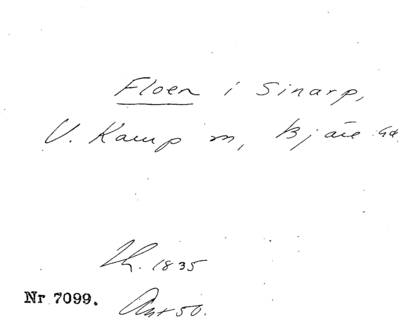 Floen i Sinarp,
V. Karup sn, Bjäre hd
Th. 1835
Nr 7099.
Ant 50.